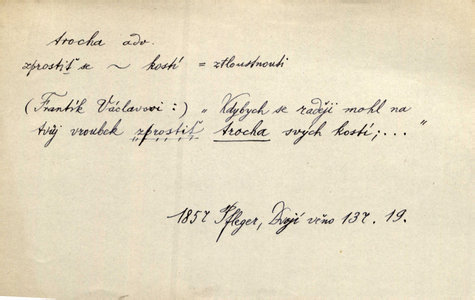 trocha adv.
zprostiť se ~ kostí = ztloustnouti
(Frantík Václavovi:) „Kdybych se raději mohl na
tvůj vroubek zprostiť trocha svých kostí; ... "
1857 Pfleger, Dvojí věno 137. 19.